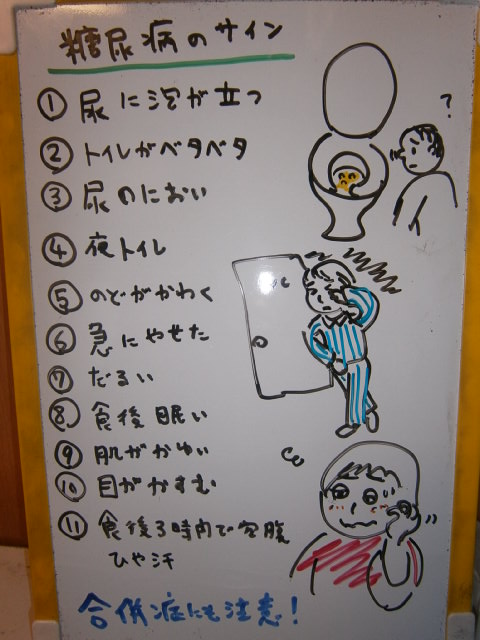 糖尿病のサイン
① 尿に泡が立つ
② トイレがベタベタ
③ 尿のにおい
④ 夜トイレ
⑤ のどがかわく
⑥ 急にやせた
⑦ だるい
⑧ 食後眠い
⑨ 肌がかゆい
⑩ 目がかすむ
⑪ 食後3時間で空腹
ひや汗
合併症にも注意!
?